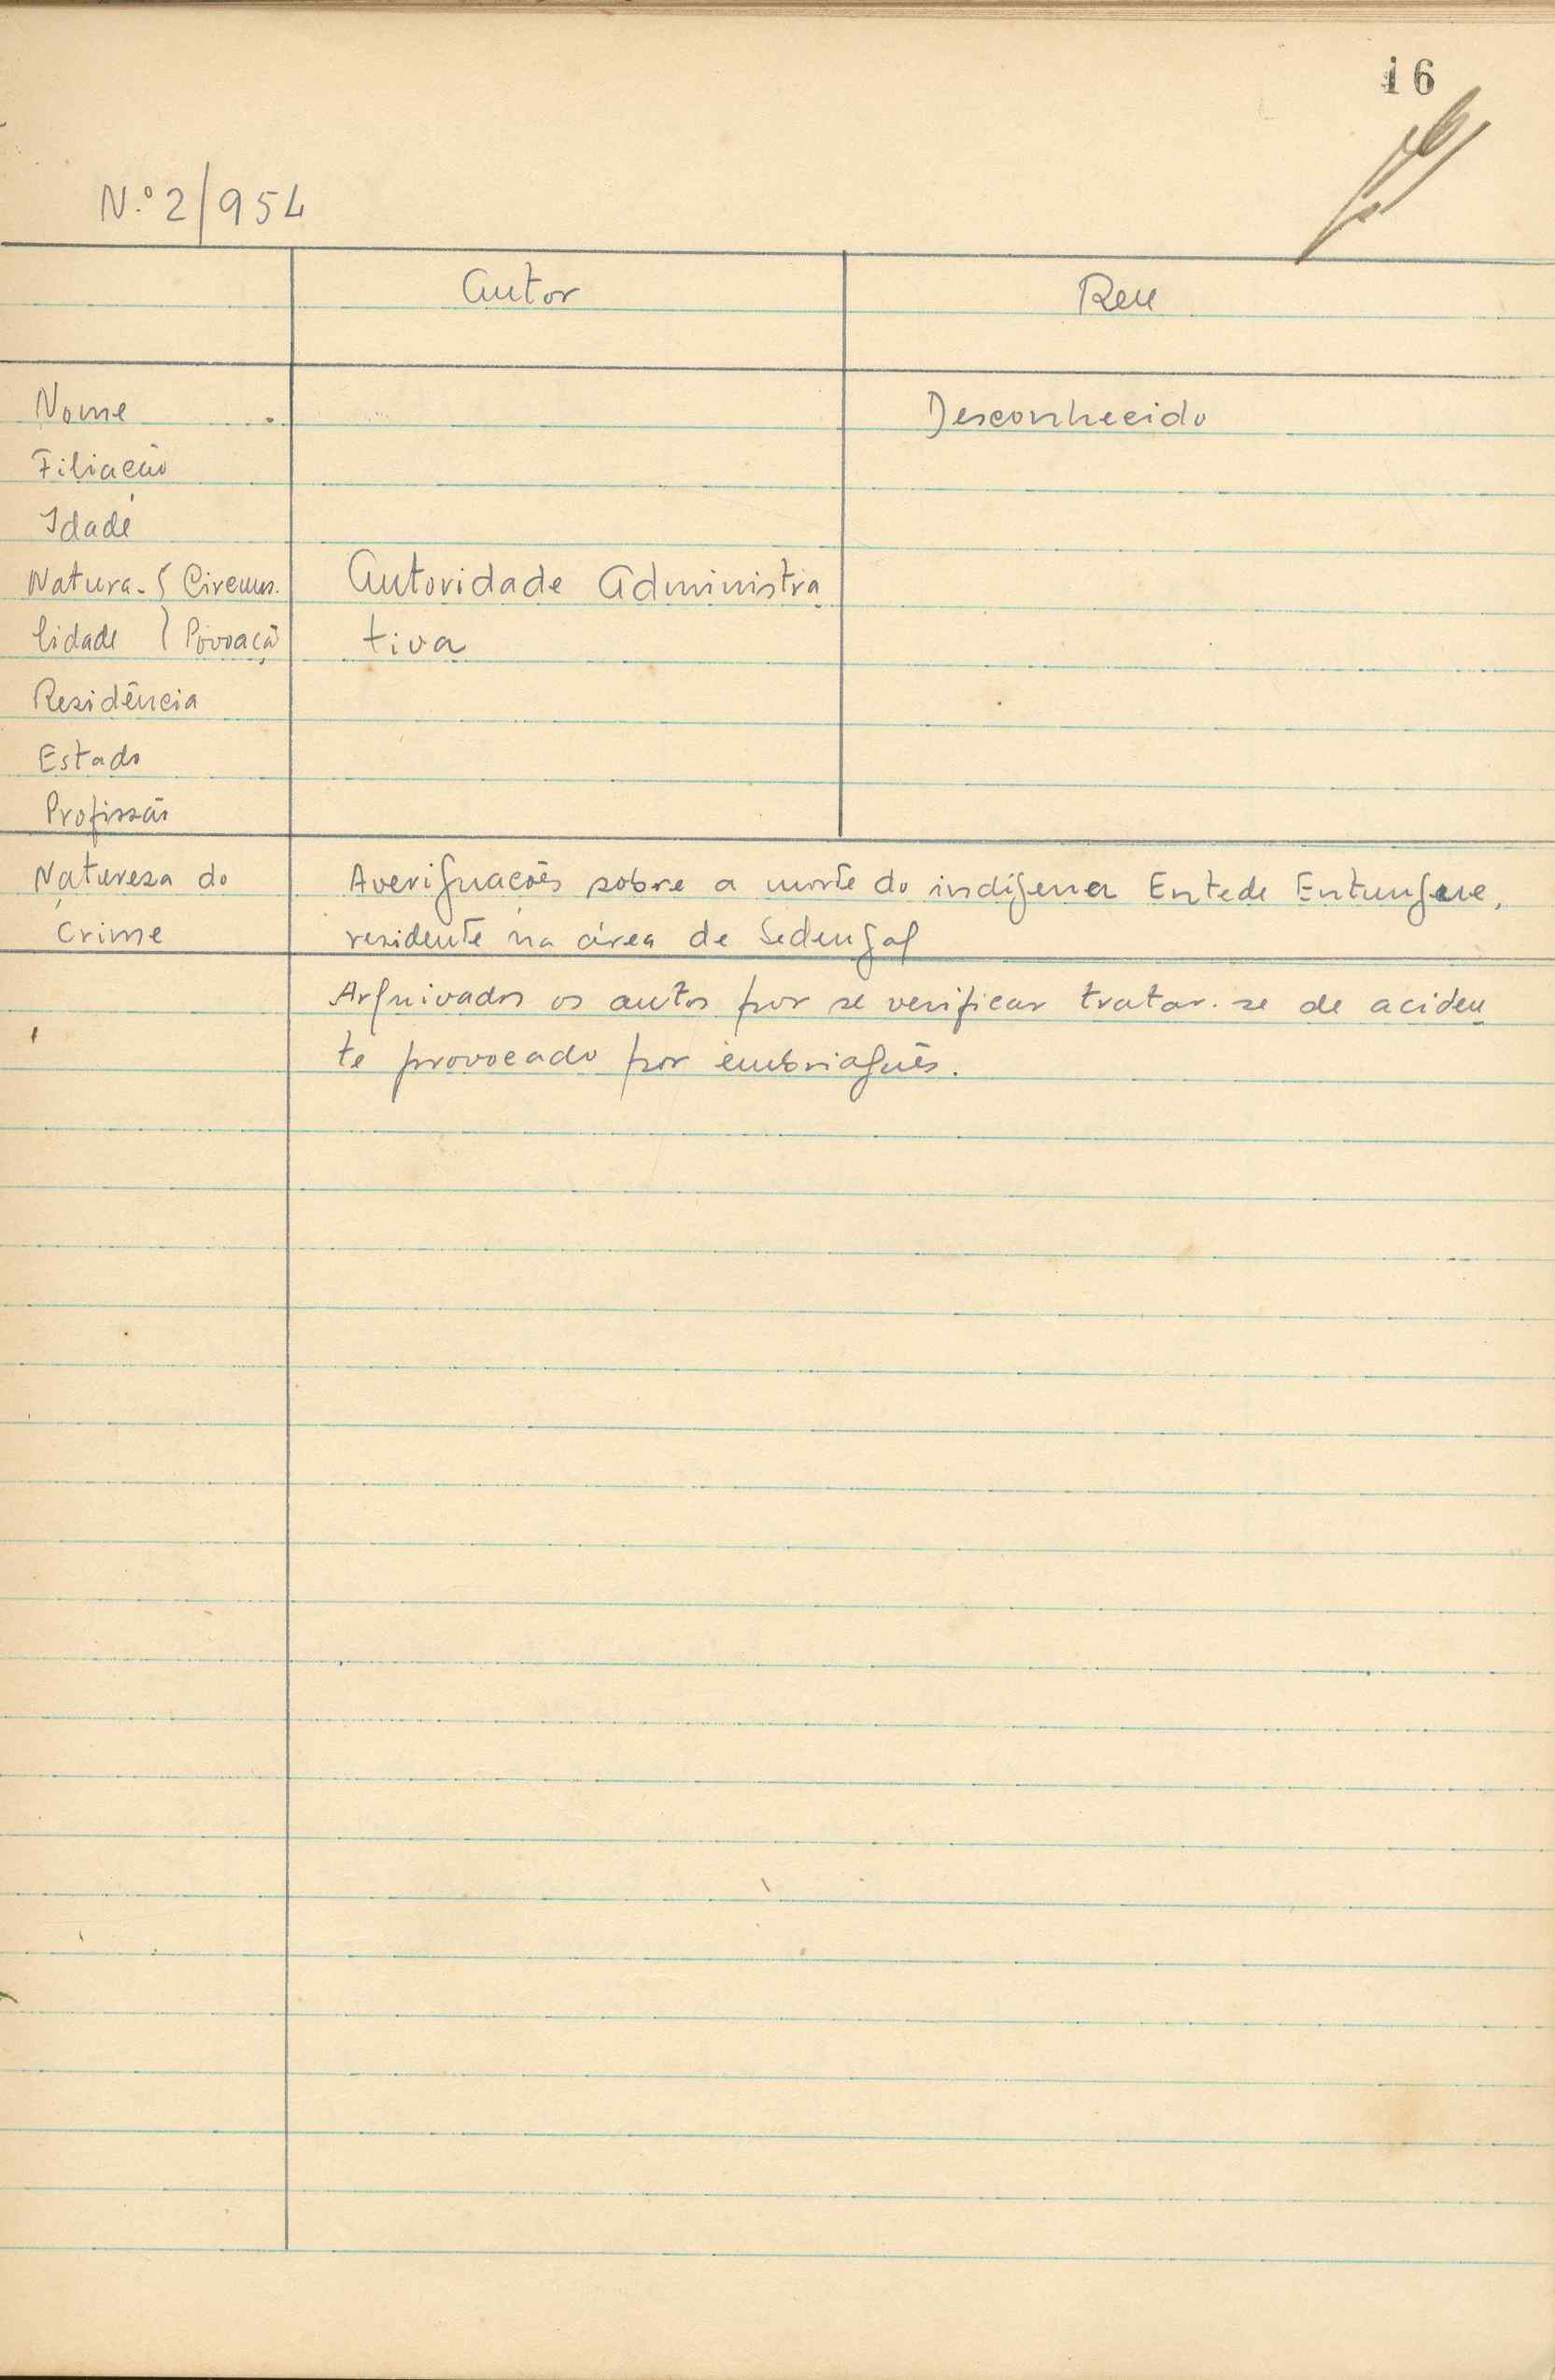 16
N.º 2/954
Autor Reu
Nome Desconhecido
Filiação
Idade
Natura- { Circuns. Autoridade Administra
lidade } Povoaçã tiva
Residência
Estado
Profissão
Natureza do Averiguações sobre a morte do indígena Entede
Crime residente na área de Sedengal
Arquivados os autos por se verificar tratar-se de aciden
te provocado por embriaguês.